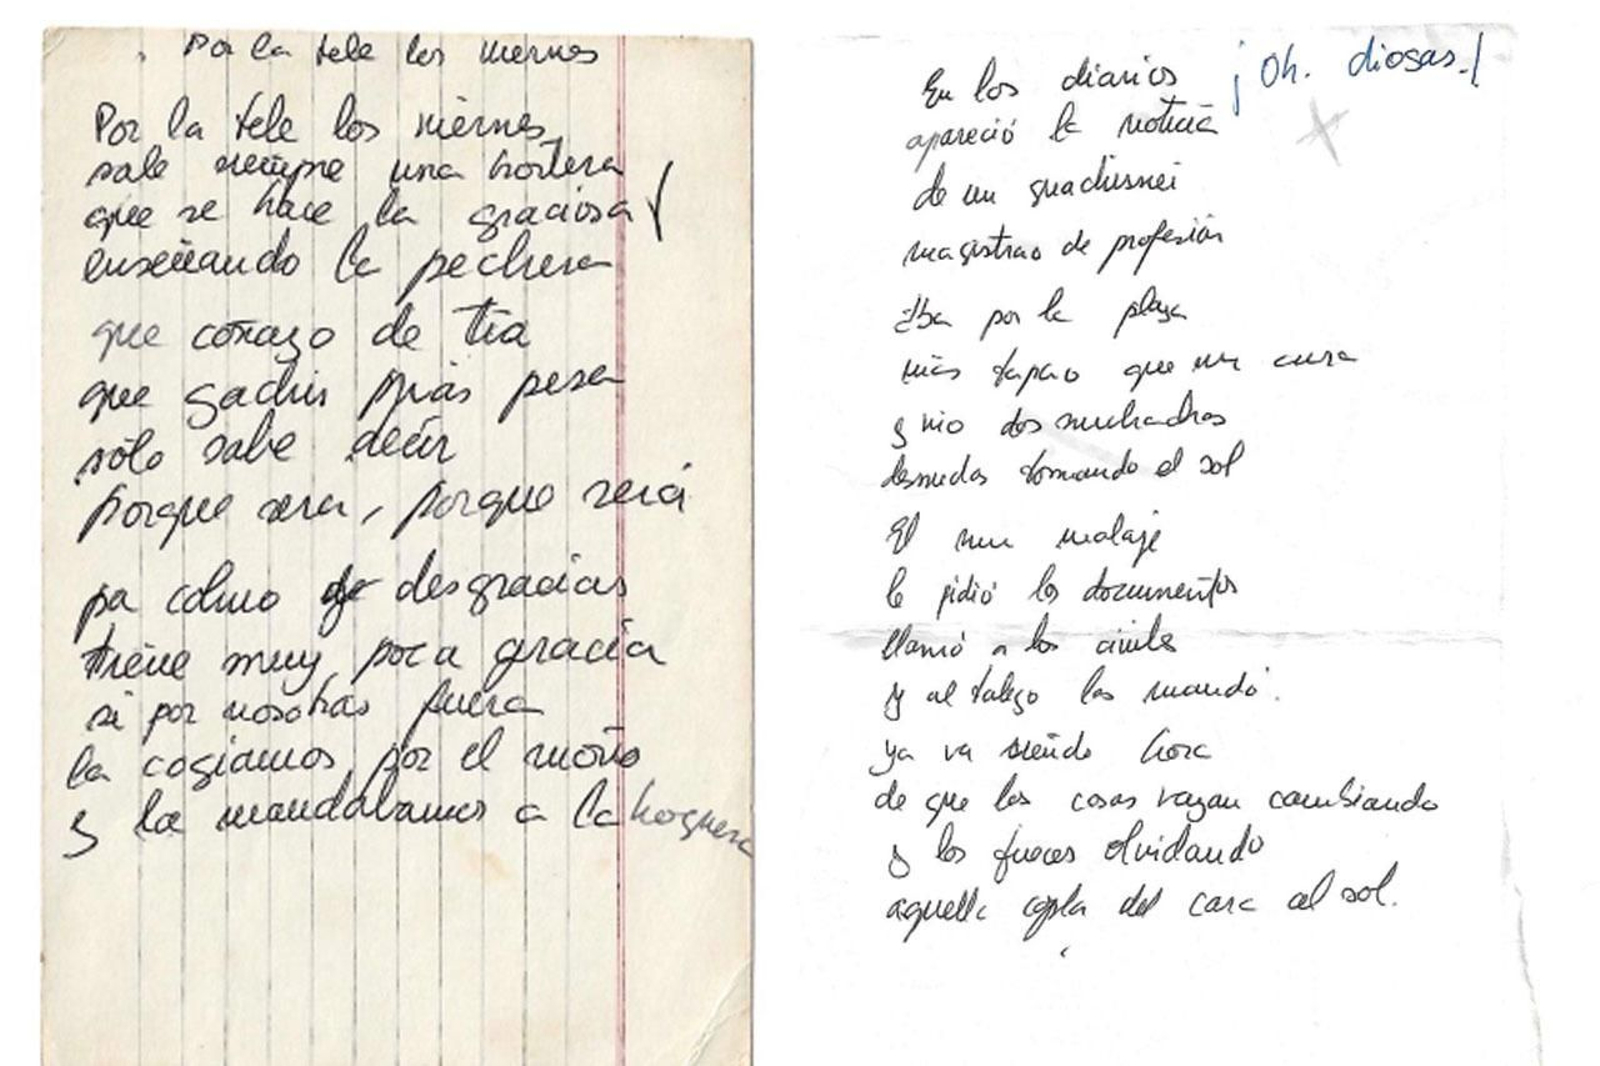 Por la tele los viernes
Por la tele los viernes
sale siempre una hortera
que se hace la graciosa
enseñando la pechera
que coñazo de tía
que gachís más pesa
sólo sabe decir
porque sera, porque será
pa colmo de desgracias
tiene muy poca gracia
si por nosotras fuera
la cogiamos por el moño
y la mandabamos a la hoguera
¡Oh. diosas.!
En los diarios
apareció la noticia
de un
magistrao de profesión
Iba por la playa
más tapao que un cura
y vio dos muchachas
desnudas tomando el sol
El mu malaje
le pidió los documentos
llamó a los civiles
y al talego las mandó.
ya va siendo hora
de que las cosas vayan cambiando
y los jueces olvidando
aquella copla del cara al sol.